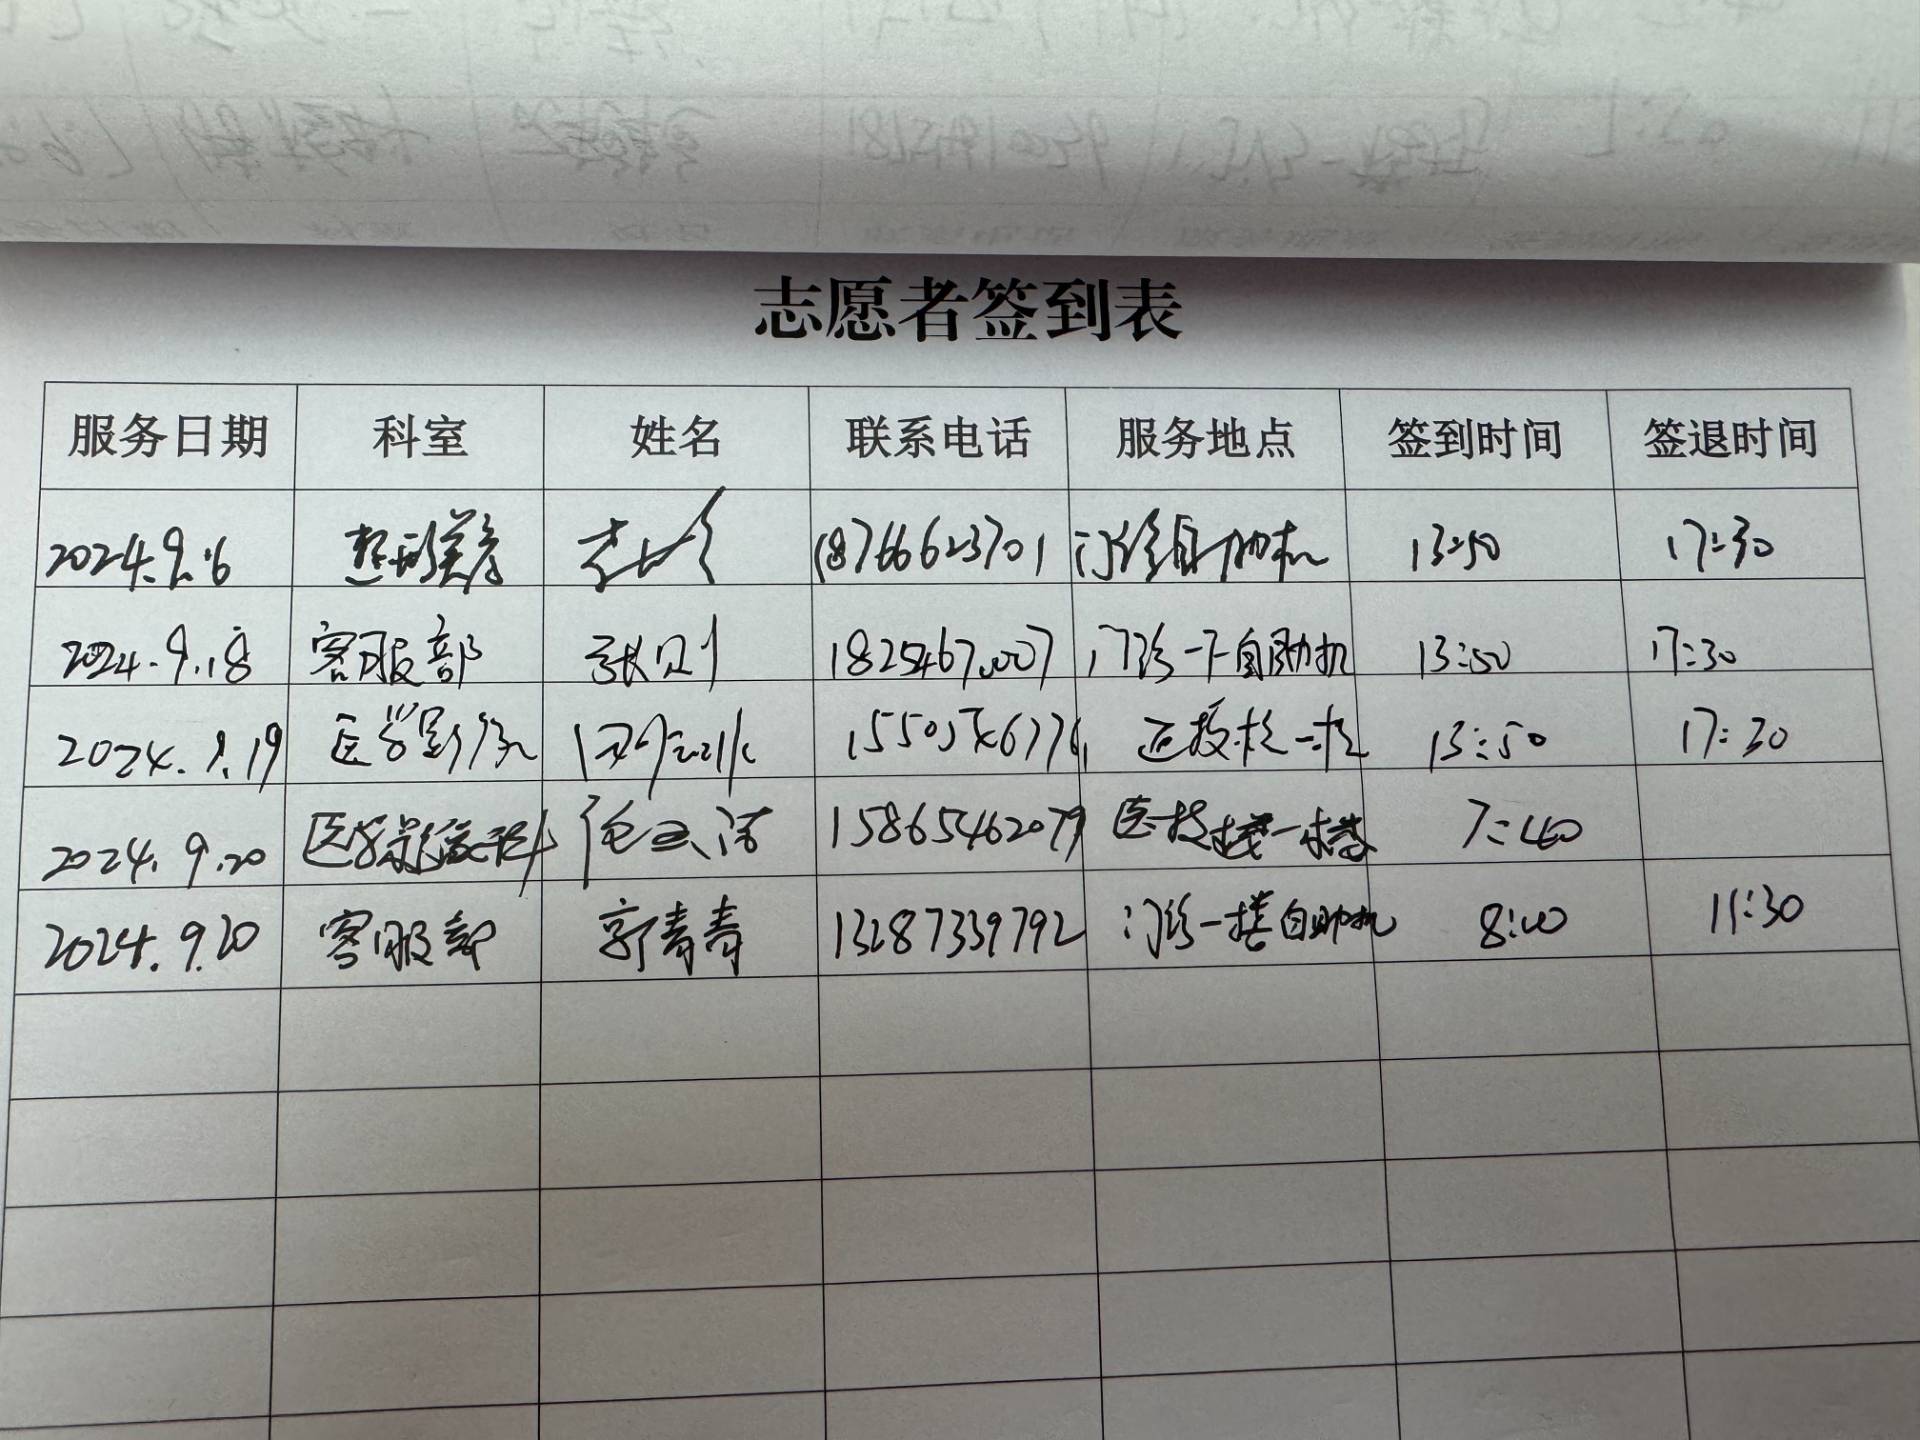 志愿者签到表
服务日期 科室 姓名 联系电话 服务地点 签到时间 签退时间
2024.9.6 整形美容 18766623701 门诊自助机 13:50 17:30
2024.9.18 客服部 张则 门诊一下自助机 13:50 17:30
2024.9.19 医学影像 医技楼一楼 13:50 17:30
2024.9.20 医学影像科 15865462079 医技楼一楼 7:40
2024.9.20 客服部 郭青青 13287339792 门诊一楼自助机 8:00 11:30